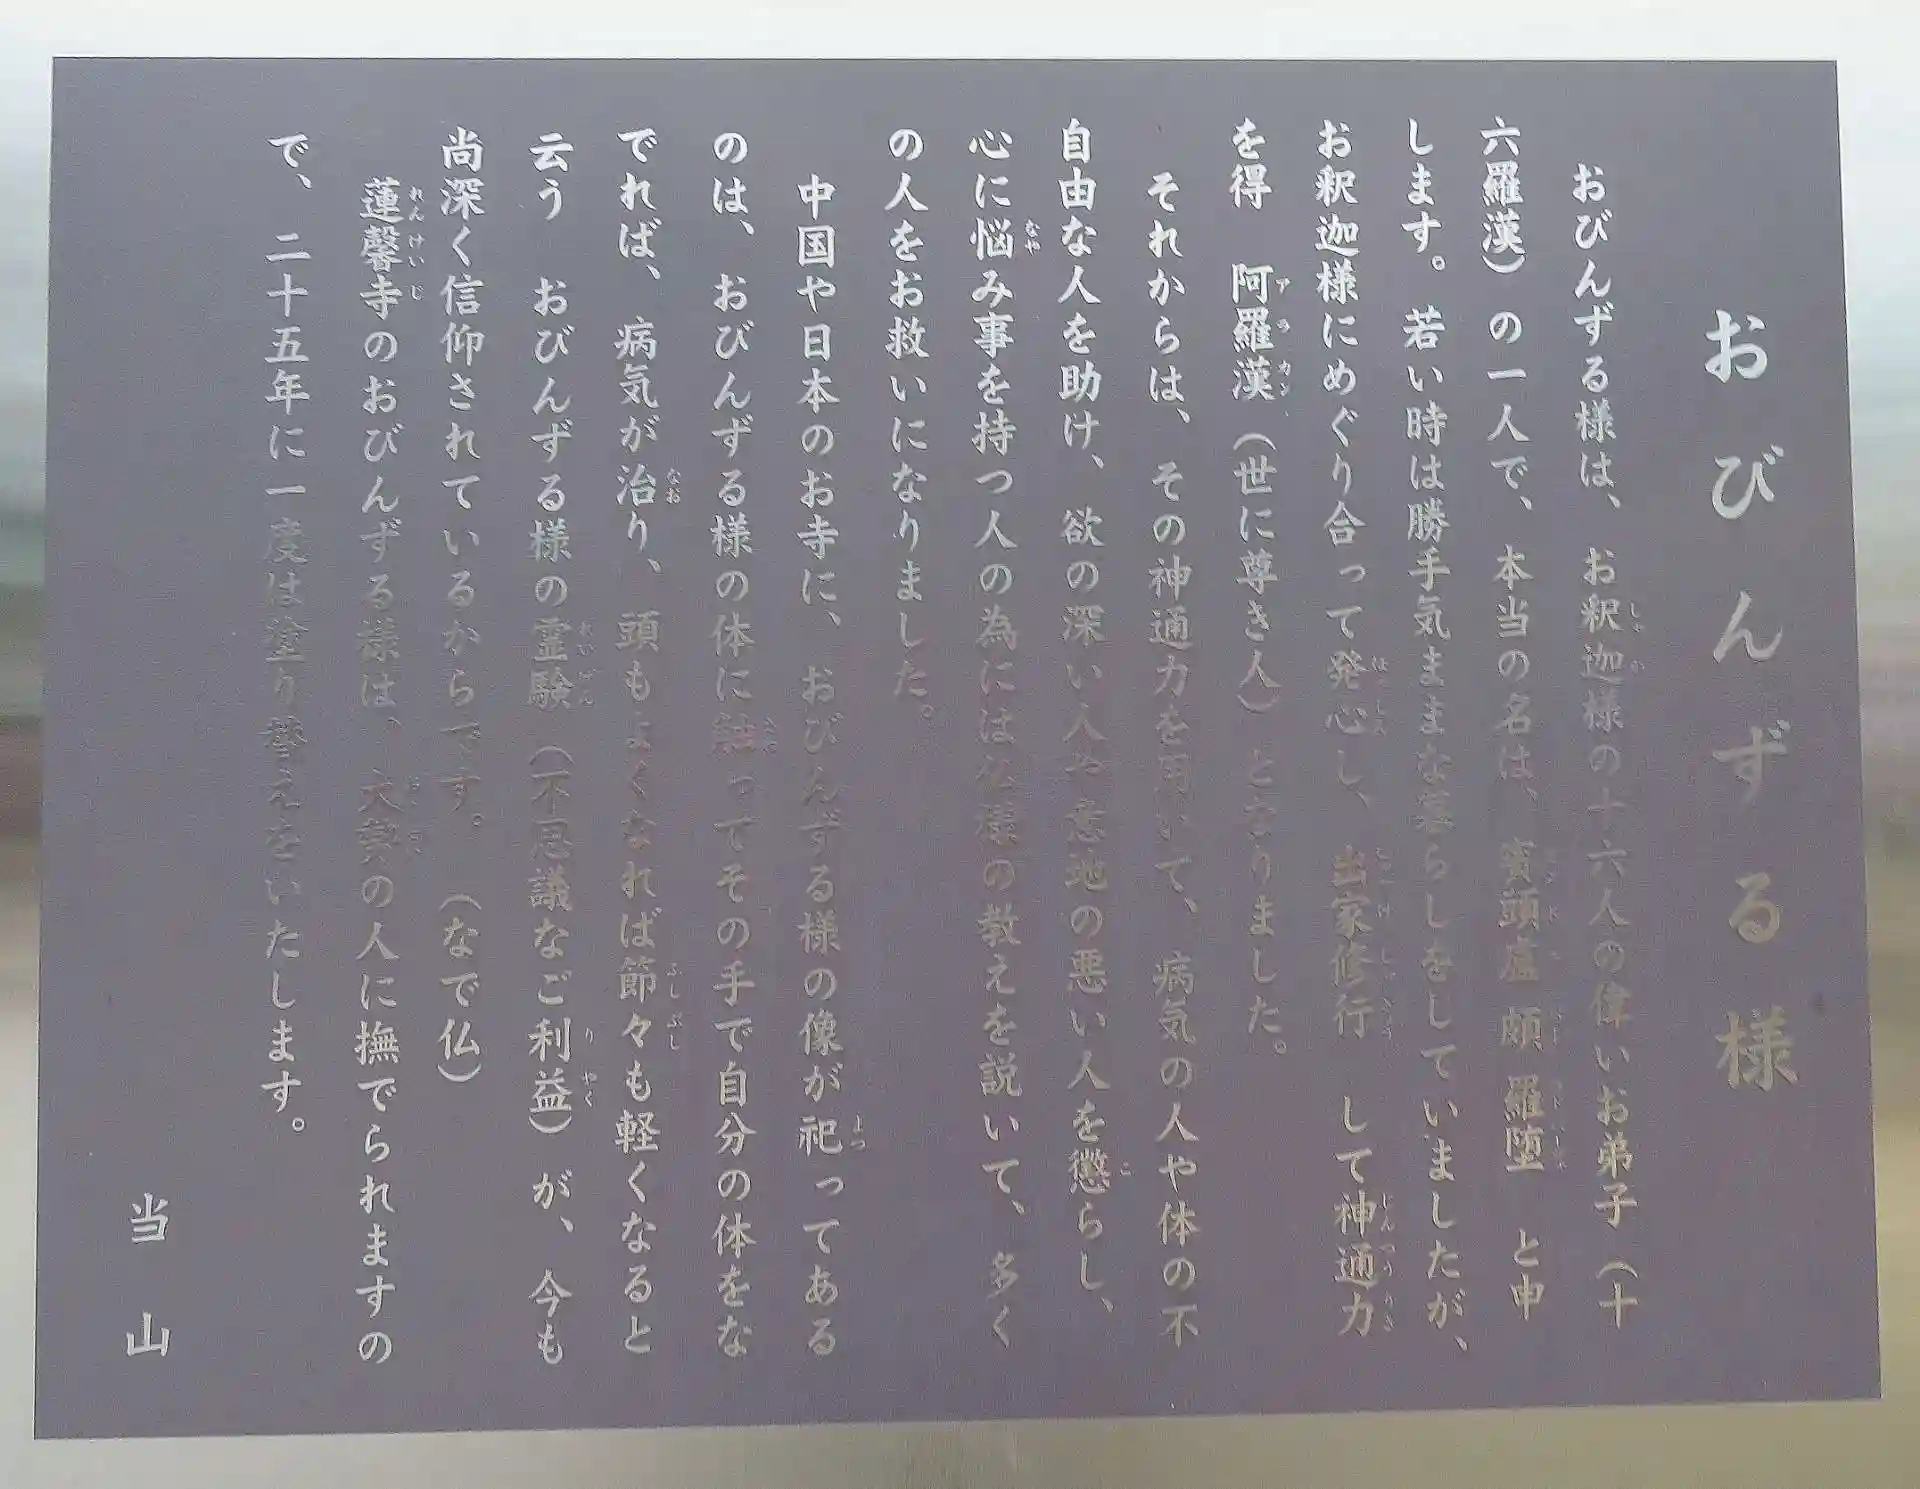 おびんずる様
おびんずる様は、お釈迦様の十六人の偉いお弟子（十
六羅漢）の一人で、本当の名は、賓頭盧 頗羅堕 と申
します。若い時は勝手気ままな暮らしをしていましたが、
お釈迦様にめぐり合って発心し、出家修行 して神通力
を得 阿羅漢（世に尊き人）となりました。
それからは、その神通力を用いて、病気の人や体の不
自由な人を助け、欲の深い人や意地の悪い人を懲らし、
心に悩み事を持つ人の為には仏様の教えを説いて、多く
の人をお救いになりました。
中国や日本のお寺に、おびんずる様の像が祀ってある
のは、おびんずる様の体に触ってその手で自分の体をな
でれば、病気が治り、頭もよくなれば節々も軽くなると
云う おびんずる様の霊験（不思議なご利益）が、今も
尚深く信仰されているからです。（なで仏）
蓮馨寺のおびんずる様は、大勢の人に撫でられますの
で、二十五年に一度は塗り替えをいたします。
当山